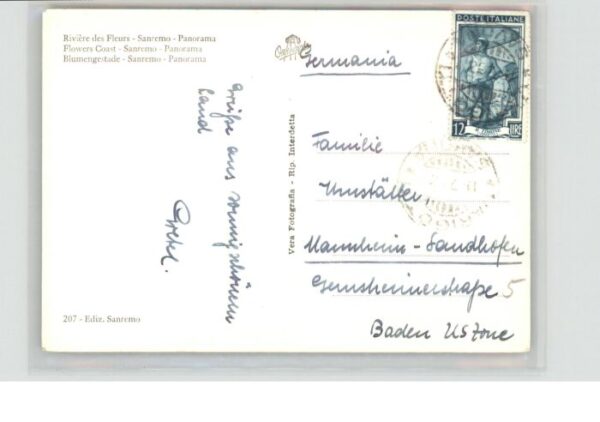 Rivière des Fleurs - Sanremo - Panorama
Flowers Coast - Sanremo - Panorama
Blumengestade - Sanremo - Panorama
Grüße aus
Land
Gretel.
207 - Ediz. Sanremo
Vera Fotografia - Rip. Interdetta
POSTE ITALIANE
12 LIRE
Germania
Familie
Umstätter,
Mannheim-Sandhofen
Gernsheimerstraße 5
Baden US Zone